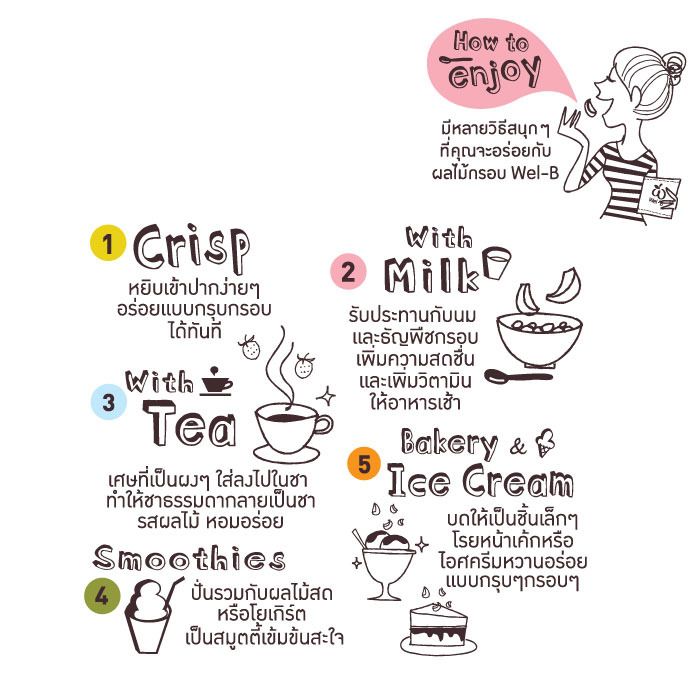 How to
enjoy
มีหลายวิธีสนุกๆ
ที่คุณจะอร่อยกับ
ผลไม้กรอบ Wel-B
1 Crisp
หยิบเข้าปากง่ายๆ
อร่อยแบบกรุบกรอบ
ได้ทันที
2 With
Milk
รับประทานกับนม
และธัญพืชกรอบ
เพิ่มความสดชื่น
และเพิ่มวิตามิน
ให้อาหารเช้า
3 With
Tea
เศษที่เป็นผงๆ ใส่ลงไปในชา
ทำให้ชาธรรมดากลายเป็นชา
รสผลไม้ หอมอร่อย
Smoothies
4 ปั่นรวมกับผลไม้สด
หรือโยเกิร์ต
เป็นสมูตตี้เข้มข้นสะใจ
5 Bakery &
Ice Cream
บดให้เป็นชิ้นเล็กๆ
โรยหน้าเค้กหรือ
ไอศครีมหวานอร่อย
แบบกรุบๆกรอบๆ